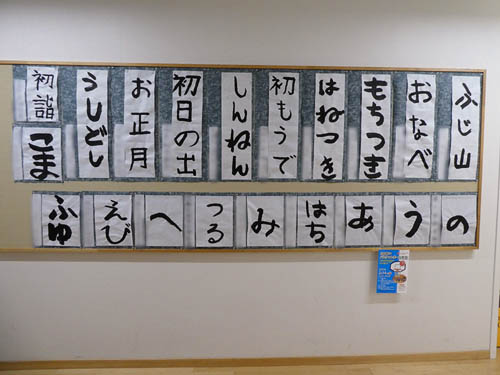 ふじ山
おなべ
もちつき
はねつき
初もうで
しんねん
初日の出
お正月
うしどし
初詣
こま
の
う
あ
はち
み
つる
へ
えび
ふゆ